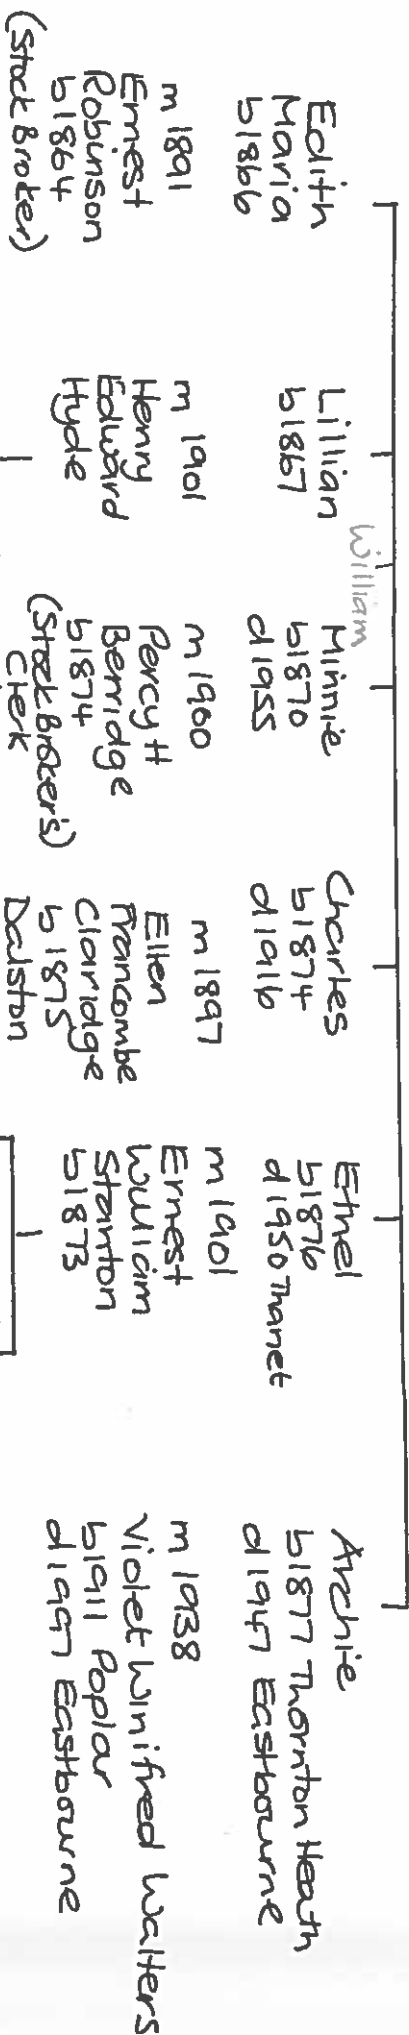 Edith
Maria
b1866
m 1891
Ernest
Robinson
b1864
(Stock Broker)
Lillian
b1867
m 1901
Henry
Edward
Hyde
William
Minnie
b1870
d1955
m 1900
Percy H
Berridge
b1874
(Stock Broker's)
Clerk
Charles
b1874
d1916
m 1897
Ellen
Francombe
Claridge
b1875
Dalston
Ethel
b1876
d1950 Thanet
m 1901
Ernest
William
Stanton
b1873
Archie
b1877 Thornton Heath
d1947 Eastbourne
m 1938
Violet Winifred Walters
b1911 Poplar
d1997 Eastbourne